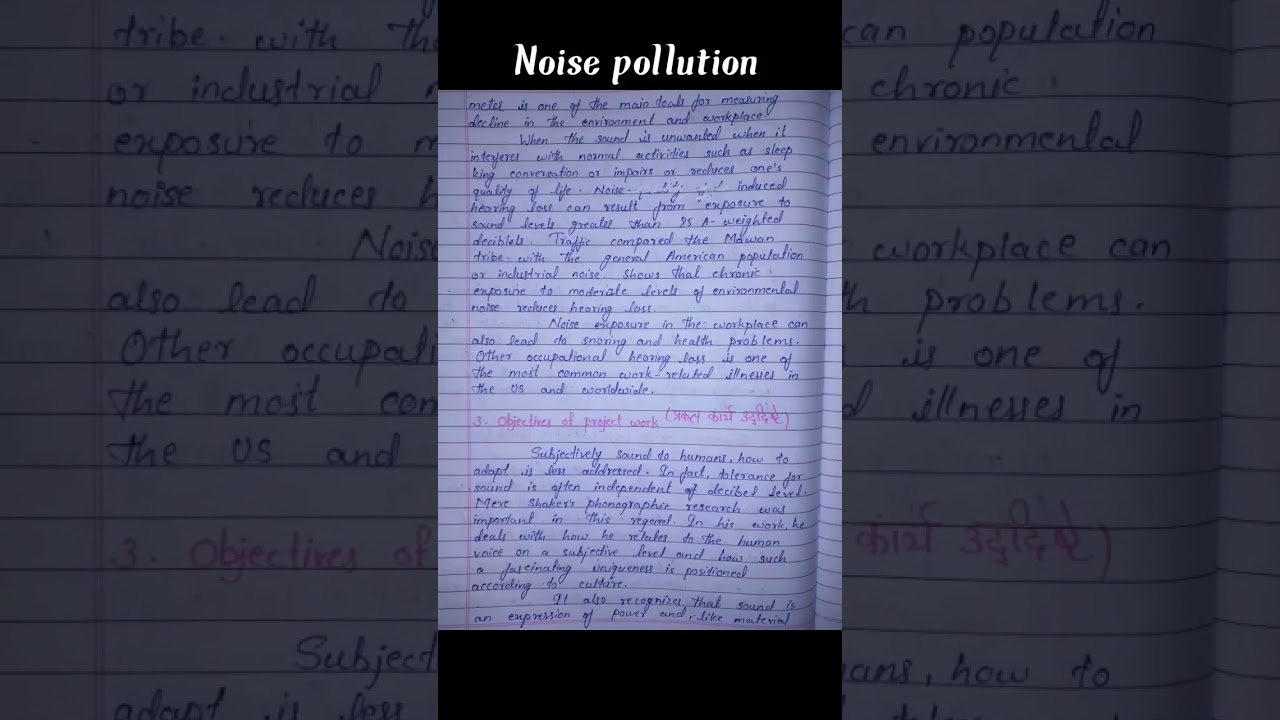 Noise pollution
meter is one of the main tools for measuring
decline in the environment and workplace
When the sound is unwanted when it
interferes with normal activities such as sleep
king conversation or impairs or reduces one's
quality of life. Noise- induced
hearing loss can result from exposure to
sound levels greater than 85 A- weighted
decibles. Traffic compared the Mawan
tribe- with the general American population
or industrial noise shows that chronic
exposure to moderate levels of environmental
noise reduces hearing loss.
Noise exposure in the workplace can
also lead to snoring and health problems.
Other occupational hearing loss is one of
the most common work-related illnesses in
the US and worldwide.
3. Objectives of project work (प्रकल्प कार्य उद्दीष्टे)
Subjectively sound to humans, how to
adapt is less addressed. In fact, tolerance for
sound is often independent of decibel level.
Mere Shaker's phonographic research was
important in this regard. In his work, he
deals with how he relates to the human
voice on a subjective level and how such
a fascinating uniqueness is positioned
according to culture.
It also recognizes that sound is
an expression of power and, like material